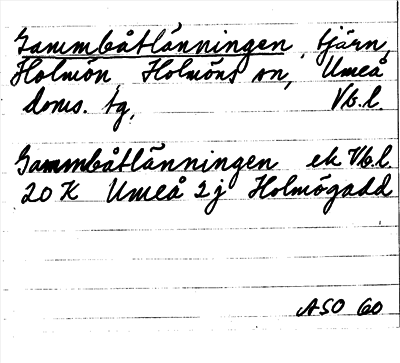 Gammbåtlänningen, tjärn,
Holmön, Holmöns sn, Umeå
doms. tg, Vb.l.
Gammbåtlänningen ek Vb.l.
20 K Umeå 2 j Holmögadd
ASO 60